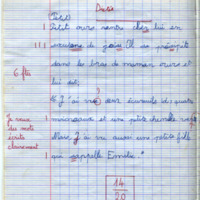 Dictée
Petit
Petit ours rentre chez lui en
III
de joie Il se précipite
6 ftes
dans les bras de maman ourse et
lui dit:
J'ai vu une écureuils de quatre
Je veux
des mots
écrits
clairement
I
et une petite chenille verte
Mais J'ai vu aussi une petite fille
I qui s'appelle Emilie."
14
20